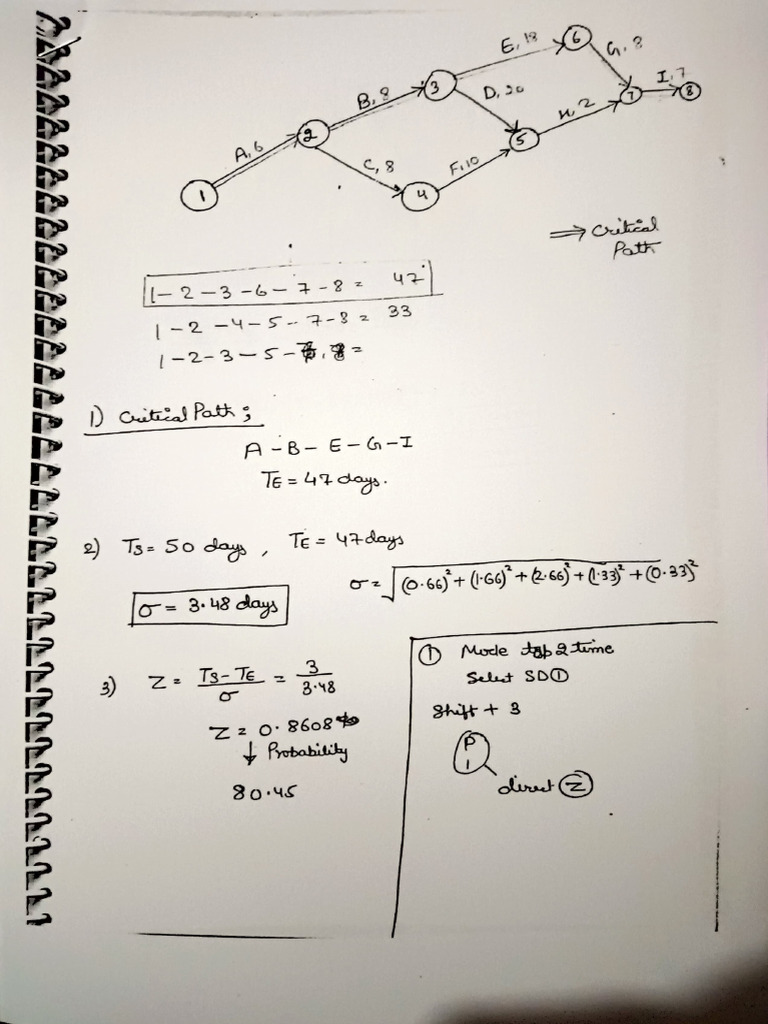 E, 18
6
G, 8
B, 8
3
D, 20
I, 7
7
8
A, 6
2
H, 2
C, 8
F, 10
5
1
4
⇒ Critical
Path
1 - 2 - 3 - 6 - 7 - 8 = 47
1 - 2 - 4 - 5 - 7 - 8 = 33
1 - 2 - 3 - 5 -
1) Critical Path ;
A - B - E - G - I
TE = 47 days.
2) TS = 50 days , TE = 47 days
σ = √(0.66)² + (1.66)² + (2.66)² + (1.33)² + (0.33)²
σ = 3.48 days
3) Z = TS - TE / σ = 3 / 3.48
Z = 0.8608
↓ Probability
80.45
① Mode 2 time
Select SD ①
Shift + 3
P
1
direct Z